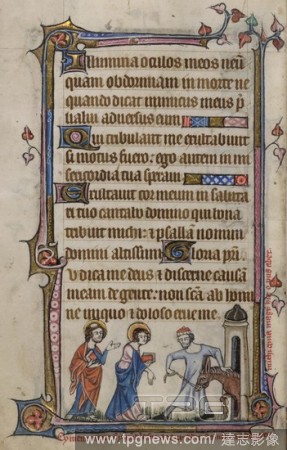 Illumina oculos meos neu͂
quam obdormiam in morte ne
quando dicat inimicus meus p̄
ualui adversus eum
Qui tribulant me exultabunt
si motus fuero: ego autem in mi
sericordia tua speravi
Exultavit cor meum in saluta
ri tuo cantabo domino qui bona
tribuit michi: i psallam nomini
domini altissimi Gloria pri.
Iudica me deus i discerne causam
meam de gente non sc̄a. ab homi
ne iniquo i doloso erue me
TPG
www.tpgnews.com/ 達志影像